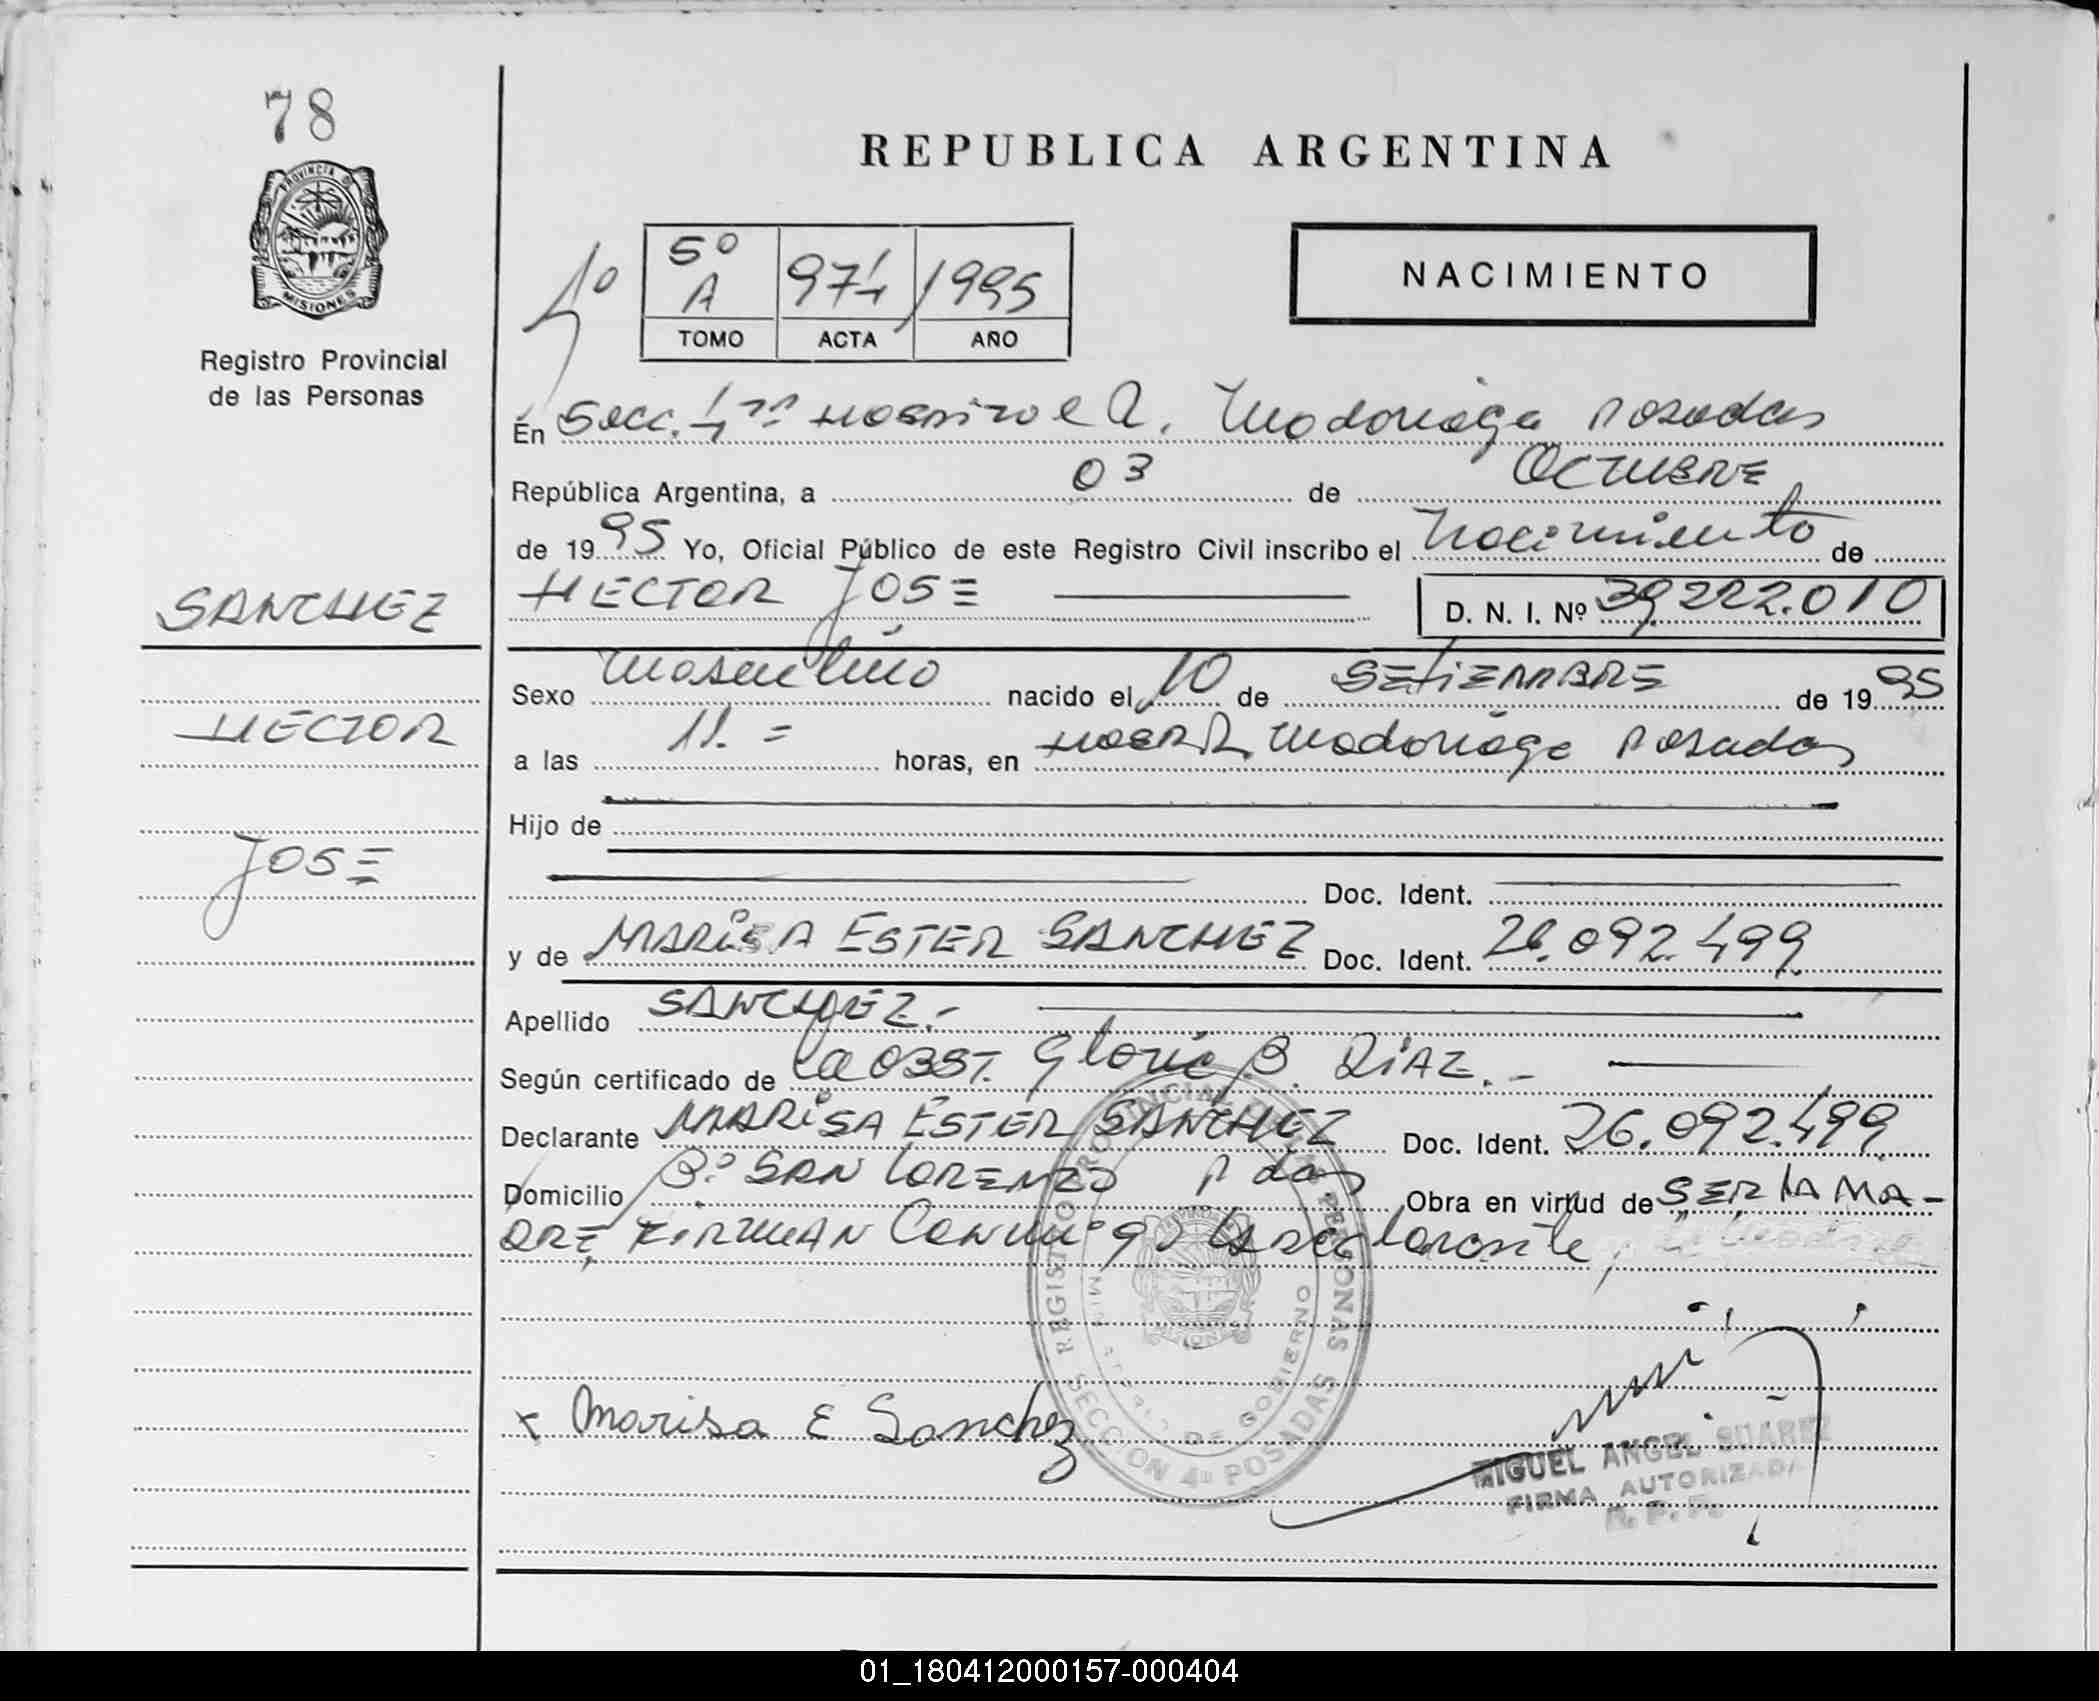 78
PROVINCIA DE
MISIONES
Registro Provincial
de las Personas
REPUBLICA ARGENTINA
4º
5º A 974 1995
TOMO ACTA AÑO
NACIMIENTO
En Secc. 4ta Hospital R. Madariaga Posadas
República Argentina, a 03 de OCTUBRE
de 1995 Yo, Oficial Público de este Registro Civil inscribo el Nacimiento de
SANCHEZ
HECTOR JOSE D. N. I. Nº 39.222.010
Sexo Masculino nacido el 10 de SETIEMBRE de 1995
HECTOR
a las 11.= horas, en Hosp. R. Madariaga Posadas
Hijo de
JOSE
Doc. Ident.
y de MARISA ESTER SANCHEZ Doc. Ident. 26.092.499
Apellido SANCHEZ.-
Según certificado de la OBST. Gloria B. DIAZ.-
Declarante MARISA ESTER SANCHEZ Doc. Ident. 26.092.499
Domicilio Bº SAN LORENZO Pdas Obra en virtud de SER LA MA-
DRE, FIRMAN Conmigo la declarante,
REGISTRO PROVINCIAL DE LAS PERSONAS
MINISTERIO DE GOBIERNO
SECCION 4ª POSADAS
x Marisa E Sanchez
MIGUEL ANGEL SUAREZ
FIRMA AUTORIZADA
R. P. P.
01_180412000157-000404